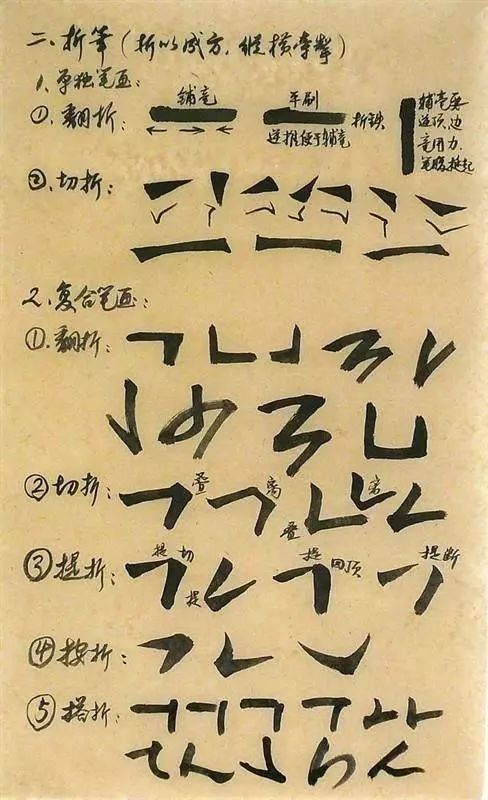 二、折笔(折以成方、纵横牵掣)
1、单独笔画:
①、翻折: 铺毫 平刷 折铁
逆推便于铺毫
铺毫要
逆顶,边
毫用力,
笔腹挺起
②、切折:
2、复合笔画:
①、翻折:
②切折: 叠 离 叠 离
③提折: 提 切 提 提 回顶 提断
④按折:
⑤搭折: